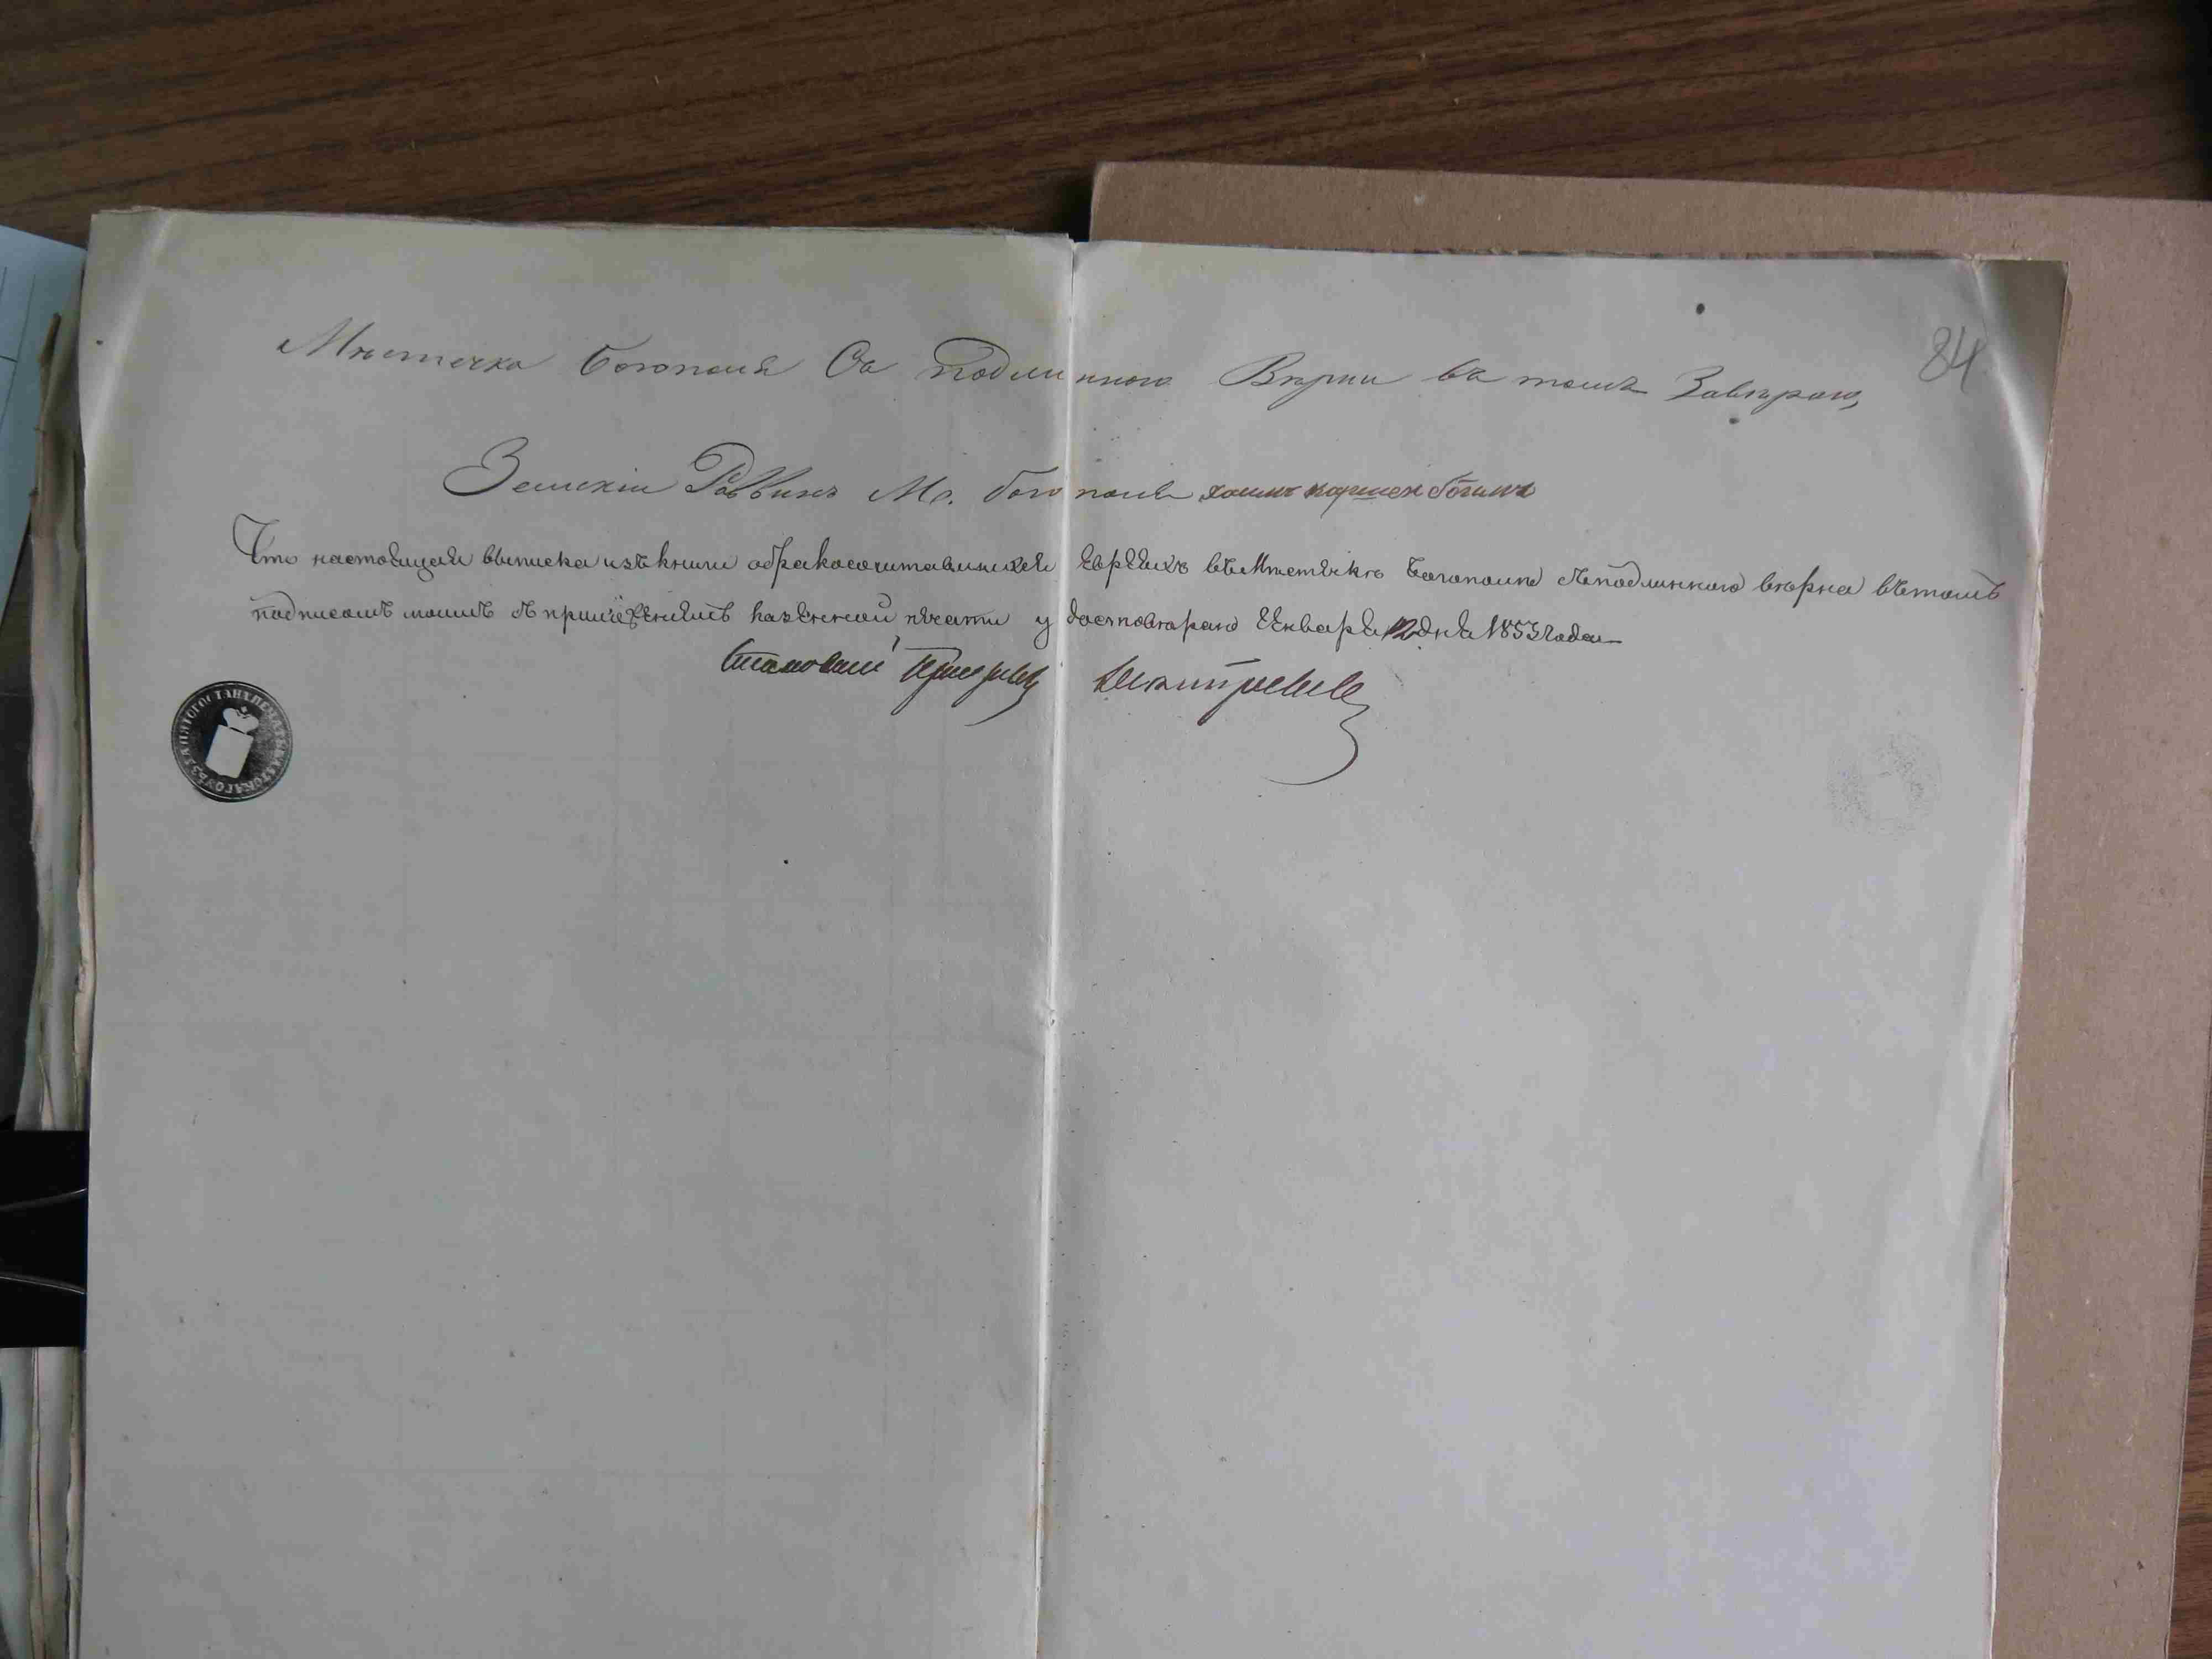 84
Мѣстечка Богополя Съ Подлиннаго Вѣрни въ томъ Завѣраю,
Земскій Раввинъ Мс. Богополѣ
Что настоящая выписка изъ книги обракосочитавшихся Евреихъ въ Мѣстѣчкѣ Богополѣ съ подлинного вѣрна въ томъ
подписомъ моимъ съ приложениемъ казенной печати удостовѣраю Января 12 дня 1853 года
Становый Приставъ